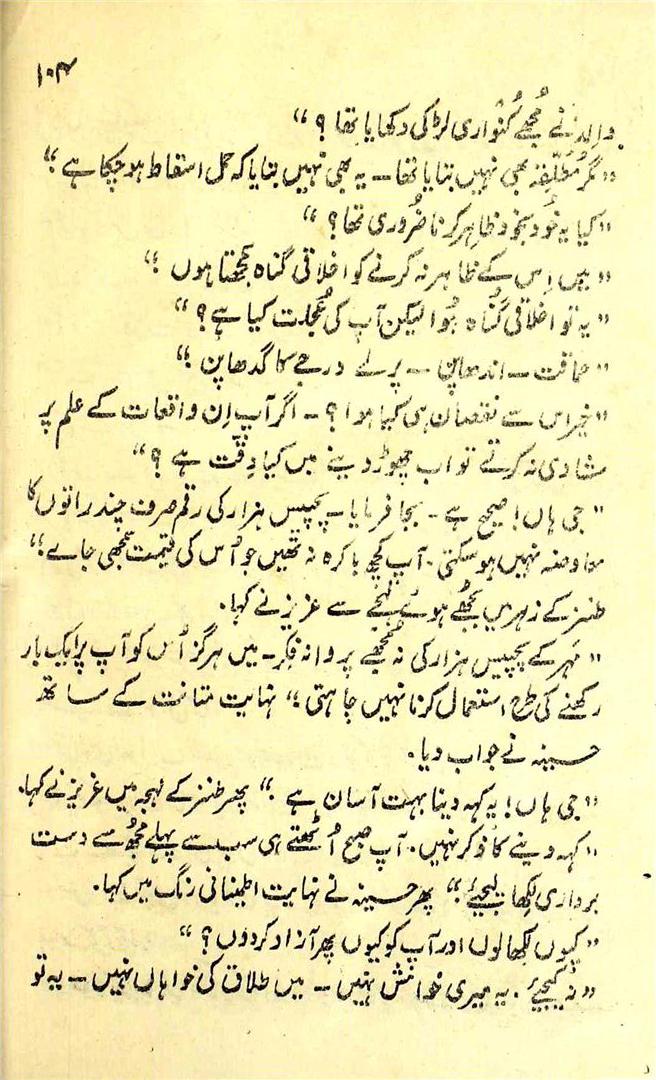 ۱۰۴
والد نے مُجھے کُنواری لڑکی دکھایا تھا ؟“
”مگر مُطَلّقہ بھی نہیں بتایا تھا — یہ بھی نہیں بتایا کہ حمل اسقاط ہو چکا ہے“
”کیا یہ خُود بخود ظاہر کرنا ضُروری تھا ؟“
”میں اِس کے ظاہر نہ کرنے کو اخلاقی گناہ سمجھتا ہوں“
”یہ تو اخلاقی گُناہ ہُوا لیکن آپ کی عُجلت کیا ہے ؟“
”حماقت — اندھاپن — پرلے درجے کا گدھاپن“
”خیر اس سے نقصان ہی کیا ہوا ؟ — اگر آپ اِن واقعات کے علم پر
شادی نہ کرتے تو اب چھوڑ دینے میں کیا دِقّت ہے ؟“
”جی ہاں! صحیح ہے — بجا فرمایا — پچیس ہزار کی رقم صرف چند راتوں کا
معاوضہ نہیں ہو سکتی ۔ آپ کچھ باکرہ نہ تھیں جو اُس کی قیمت سمجھی جائے“
طنز کے زہر میں بُجھے ہوئے لہجے سے عزیز نے کہا ۔
”مَہر کے پچیس ہزار کی نہ مُجھے پروا نہ فِکر — میں ہرگز اُس کو آپ پر ایک بار
رکھنے کی طرح استعمال کرنا نہیں چاہتی“ نہایت متانت کے ساتھ
حسینہ نے جواب دیا ۔
”جی ہاں! یہ کہہ دینا بہت آسان ہے ۔“ پھر طنز کے لہجہ میں عزیز نے کہا ۔
”کہہ دینے کا ذکر نہیں ۔ آپ صبح اُٹھتے ہی سب سے پہلے مجھ سے دست
برداری لِکھا لیجئے“ پھر حسینہ نے نہایت اطمینانی رنگ میں کہا ۔
”کیوں لِکھا لوں اور آپ کو کیوں پھر آزاد کر دوں ؟“
”نہ کیجئے ۔ یہ میری خواہش نہیں — میں طلاق کی خواہاں نہیں — یہ تو